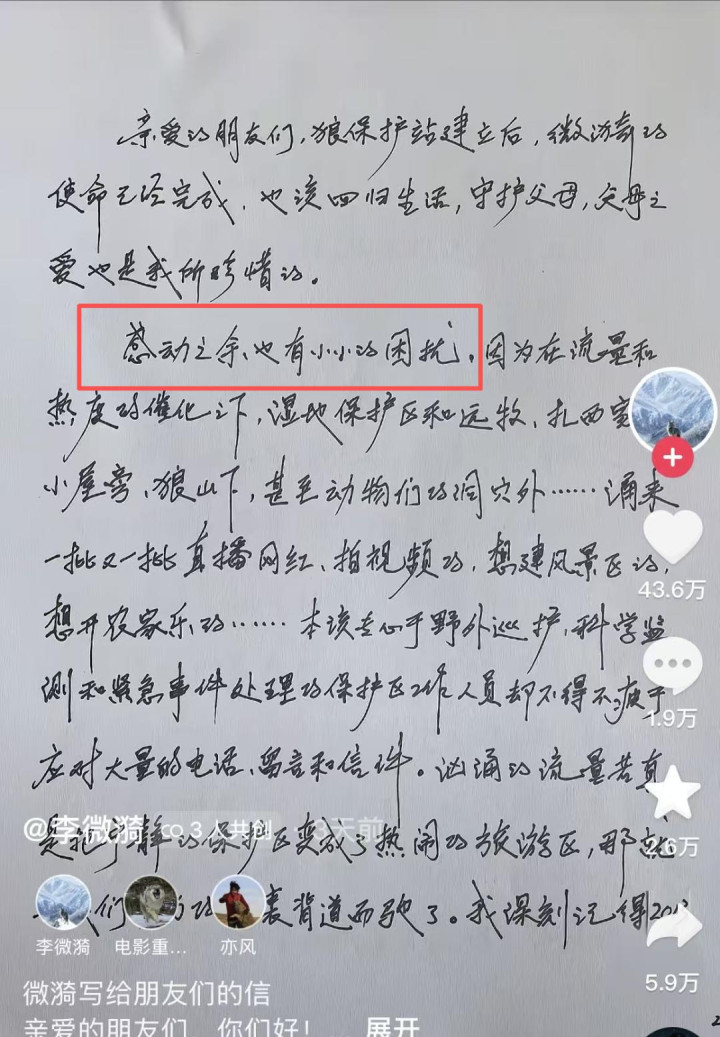 亲爱的朋友们，狼保护站建立后，微漪的
使命已经完成，也该回归生活，守护父母，父母之
爱也是我所珍惜的。
感动之余，也有小小的困扰。因为在流量和
热度的催化之下，湿地保护区和远牧、扎西
小屋旁、狼山下，甚至动物们的洞穴外……涌来
一批又一批直播网红、拍视频的，想建风景区的，
想开农家乐的……本该专心于野外巡护，科学监
测和紧急事件处理的保护区工作人员却不得不疲于
应对大量的电话、留言和信件。汹涌的流量若真
是把 的保护区变成了热闹的旅游区，那就
们 衷背道而驰了。我深刻记得
43.6万
1.9万
2.6万
5.9万
@李微漪 3人共创 3天前
李微漪 电影重... 亦风
微漪写给朋友们的信
亲爱的朋友们，你们好！ 展开